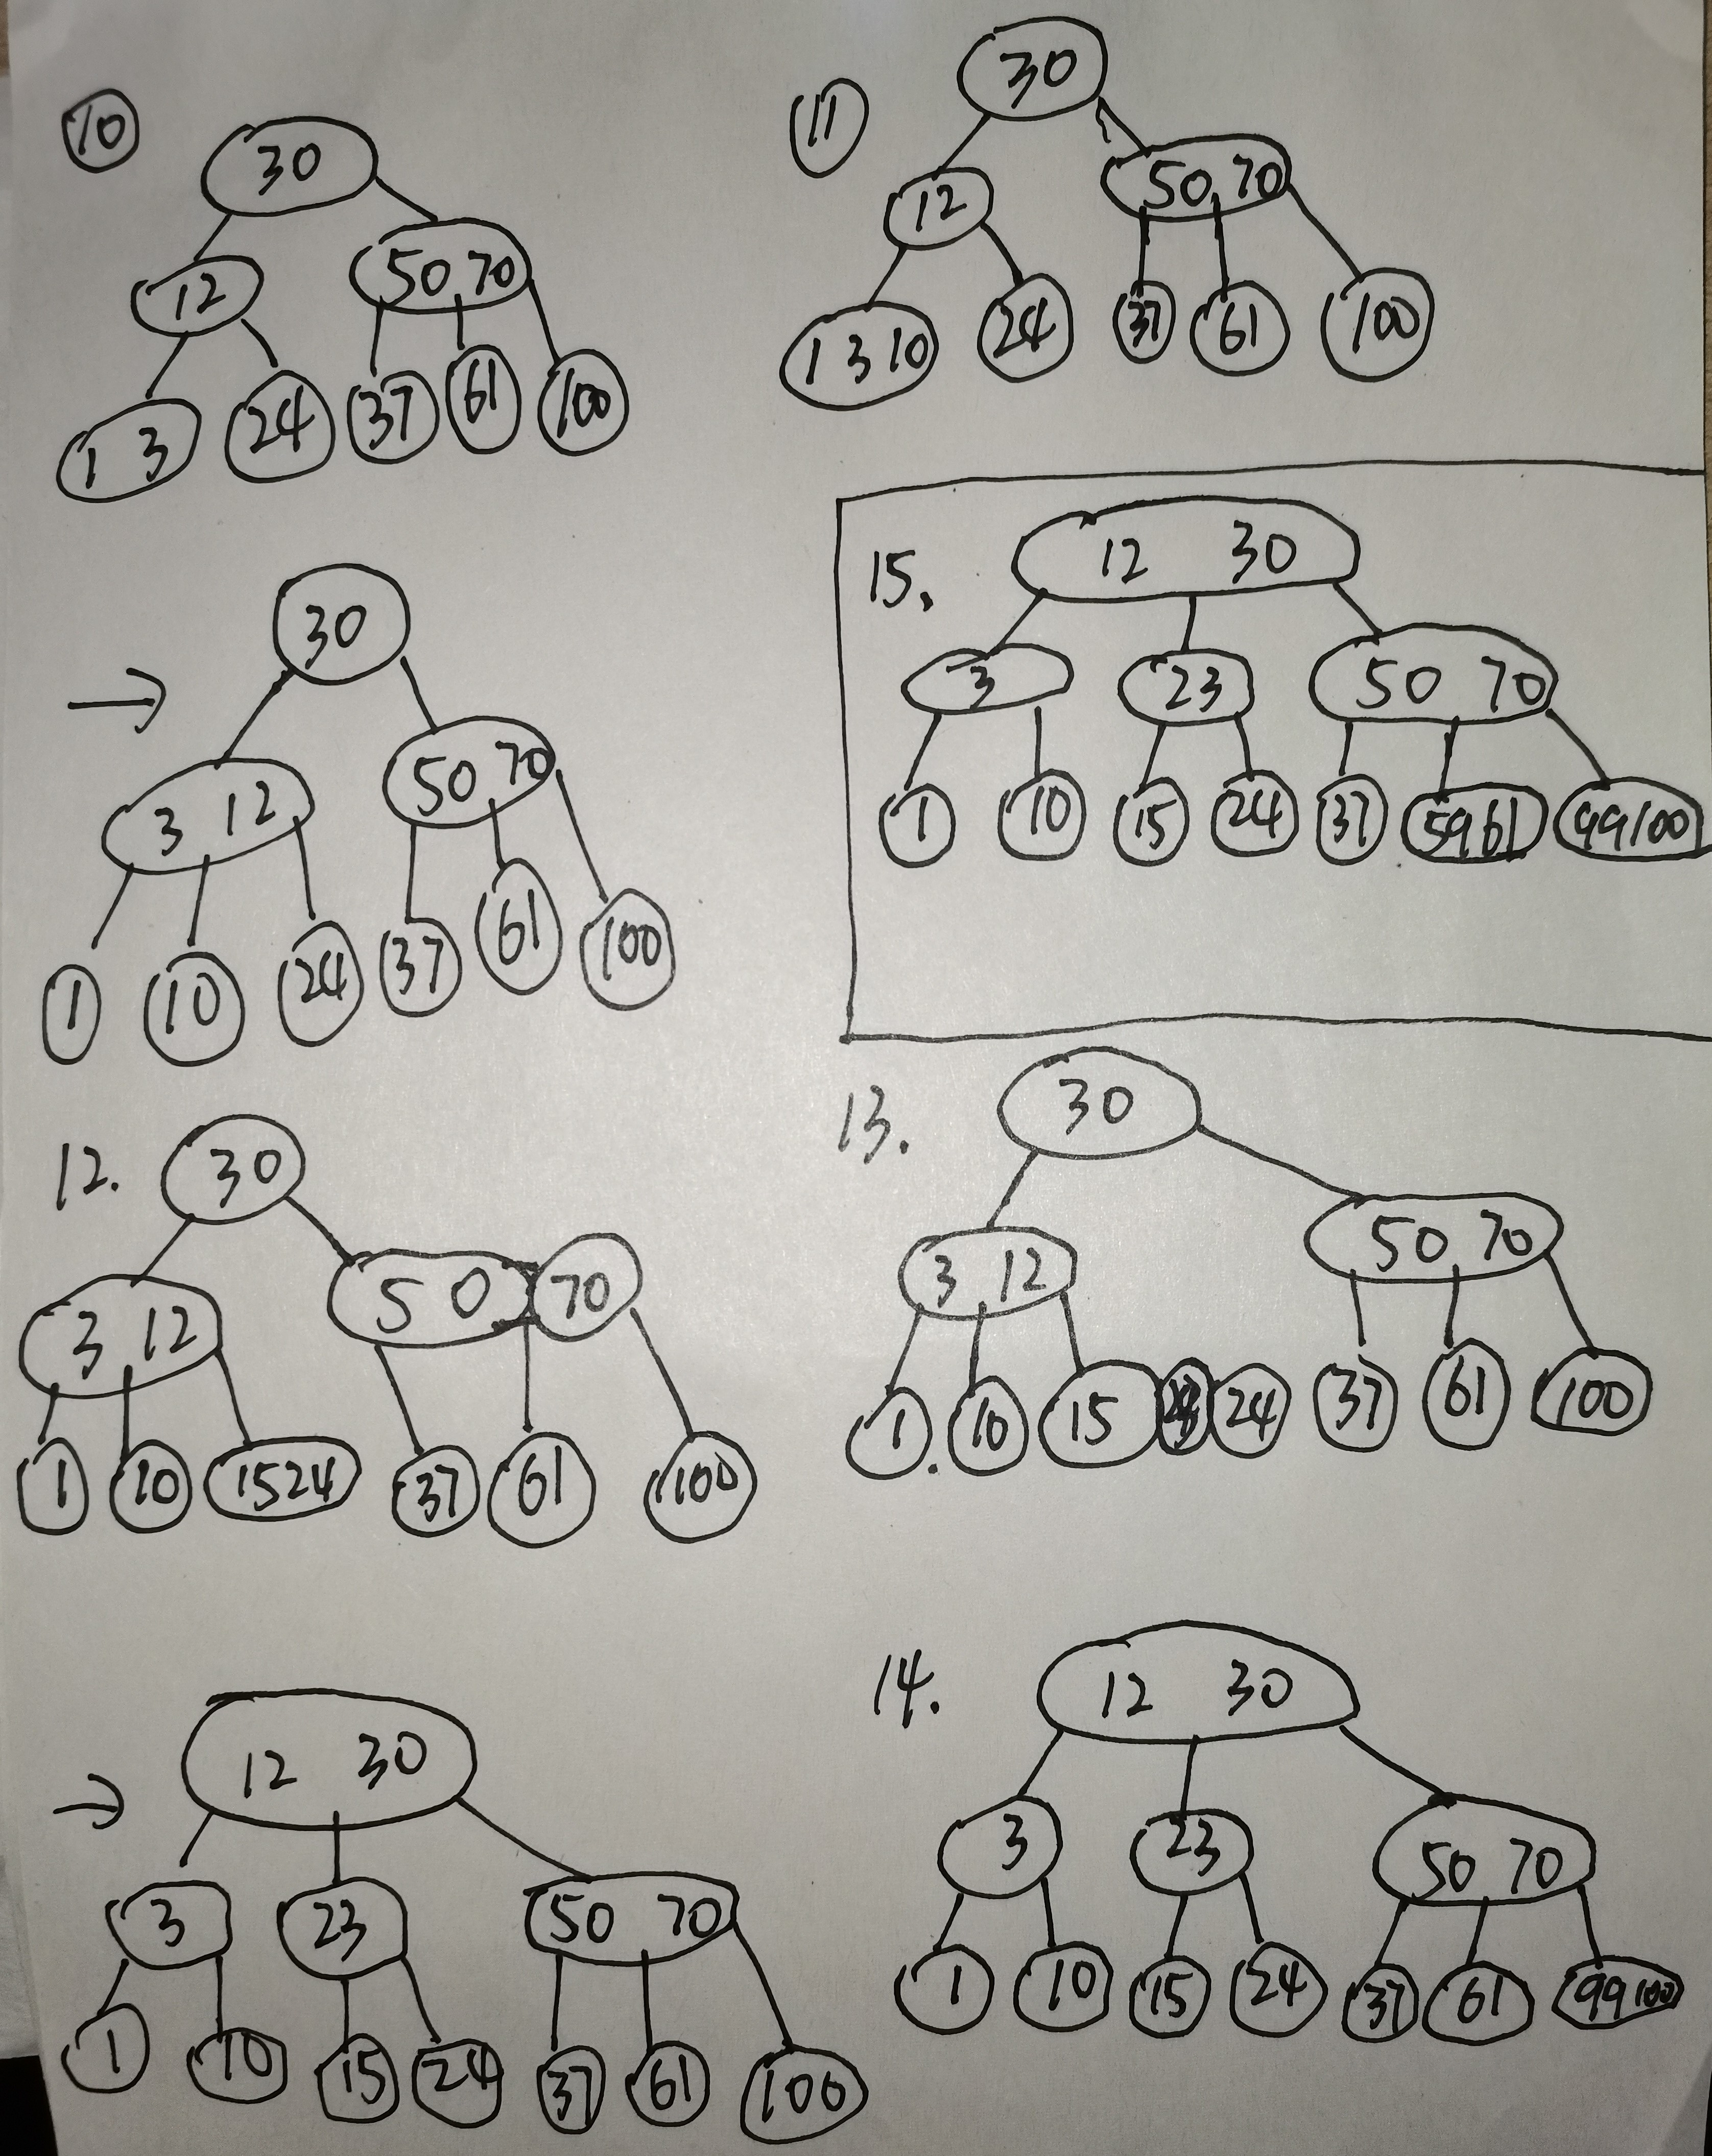 10
30
12 50 70
1 3 24 37 61 100
11
30
12 50 70
1 3 10 24 37 61 100
→
30
3 12 50 70
1 10 24 37 61 100
15.
12 30
3 23 50 70
1 10 15 24 37 59 61 99 100
12.
30
3 12 50 70
1 10 15 24 37 61 100
13.
30
3 12 50 70
1 10 15 24 37 61 100
→
12 30
3 23 50 70
1 10 15 24 37 61 100
14.
12 30
3 23 50 70
1 10 15 24 37 61 99 100